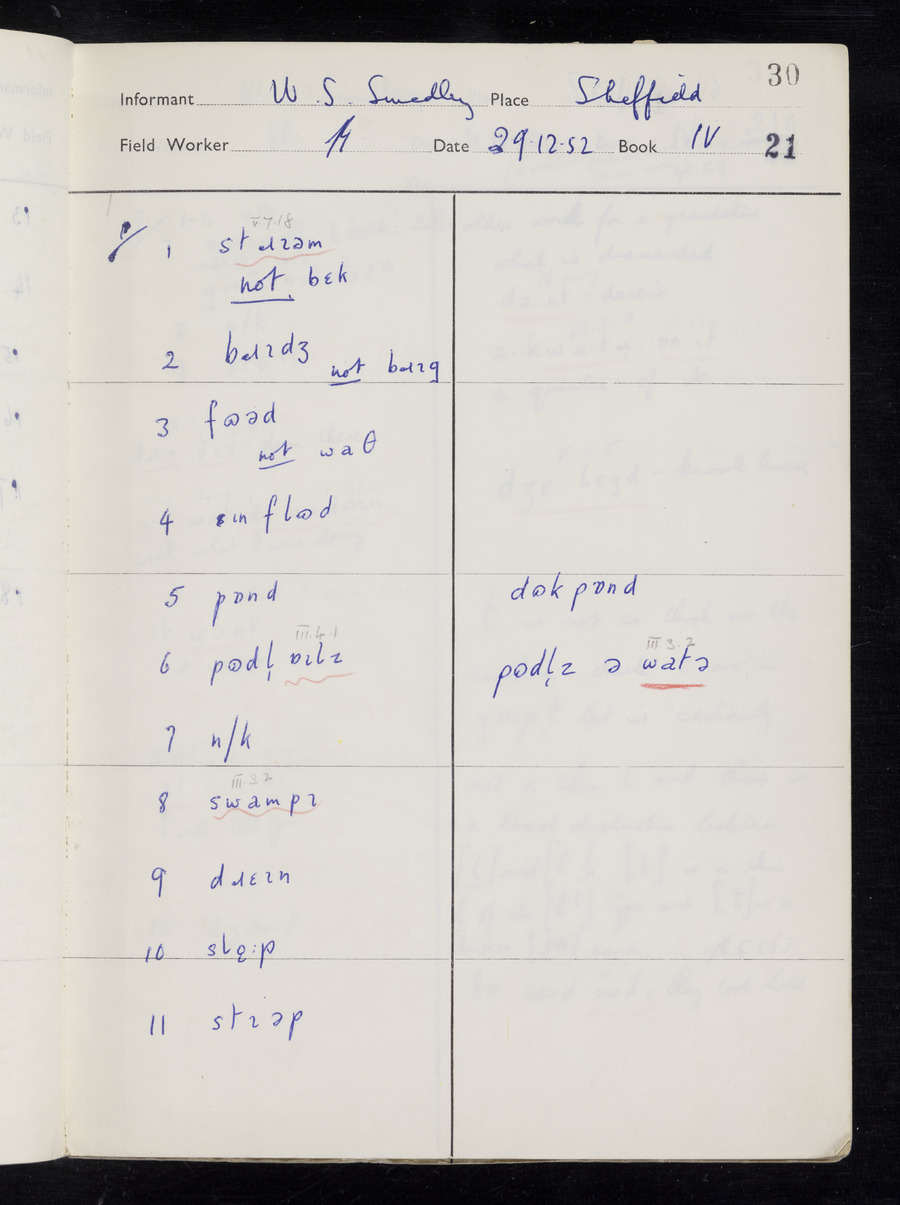 30
Informant W. S. Smedley Place Sheffield
Field Worker Date 29.12.52 Book IV 21
V.7.18
1 stɹɪəm
not bɛk
2 bɹɪdʒ not bɹɪg
3 fɷəd
not waθ
4 ɪn flɷd
5 pɒnd dɷkpɒnd
III.4.1 III 3.2
6 pɷdl̩ ɒɪlz pɷdl̩z ə watə
7 n/k
III.3.2
8 swampɪ
9 dɹɛɪn
11 stɪəp